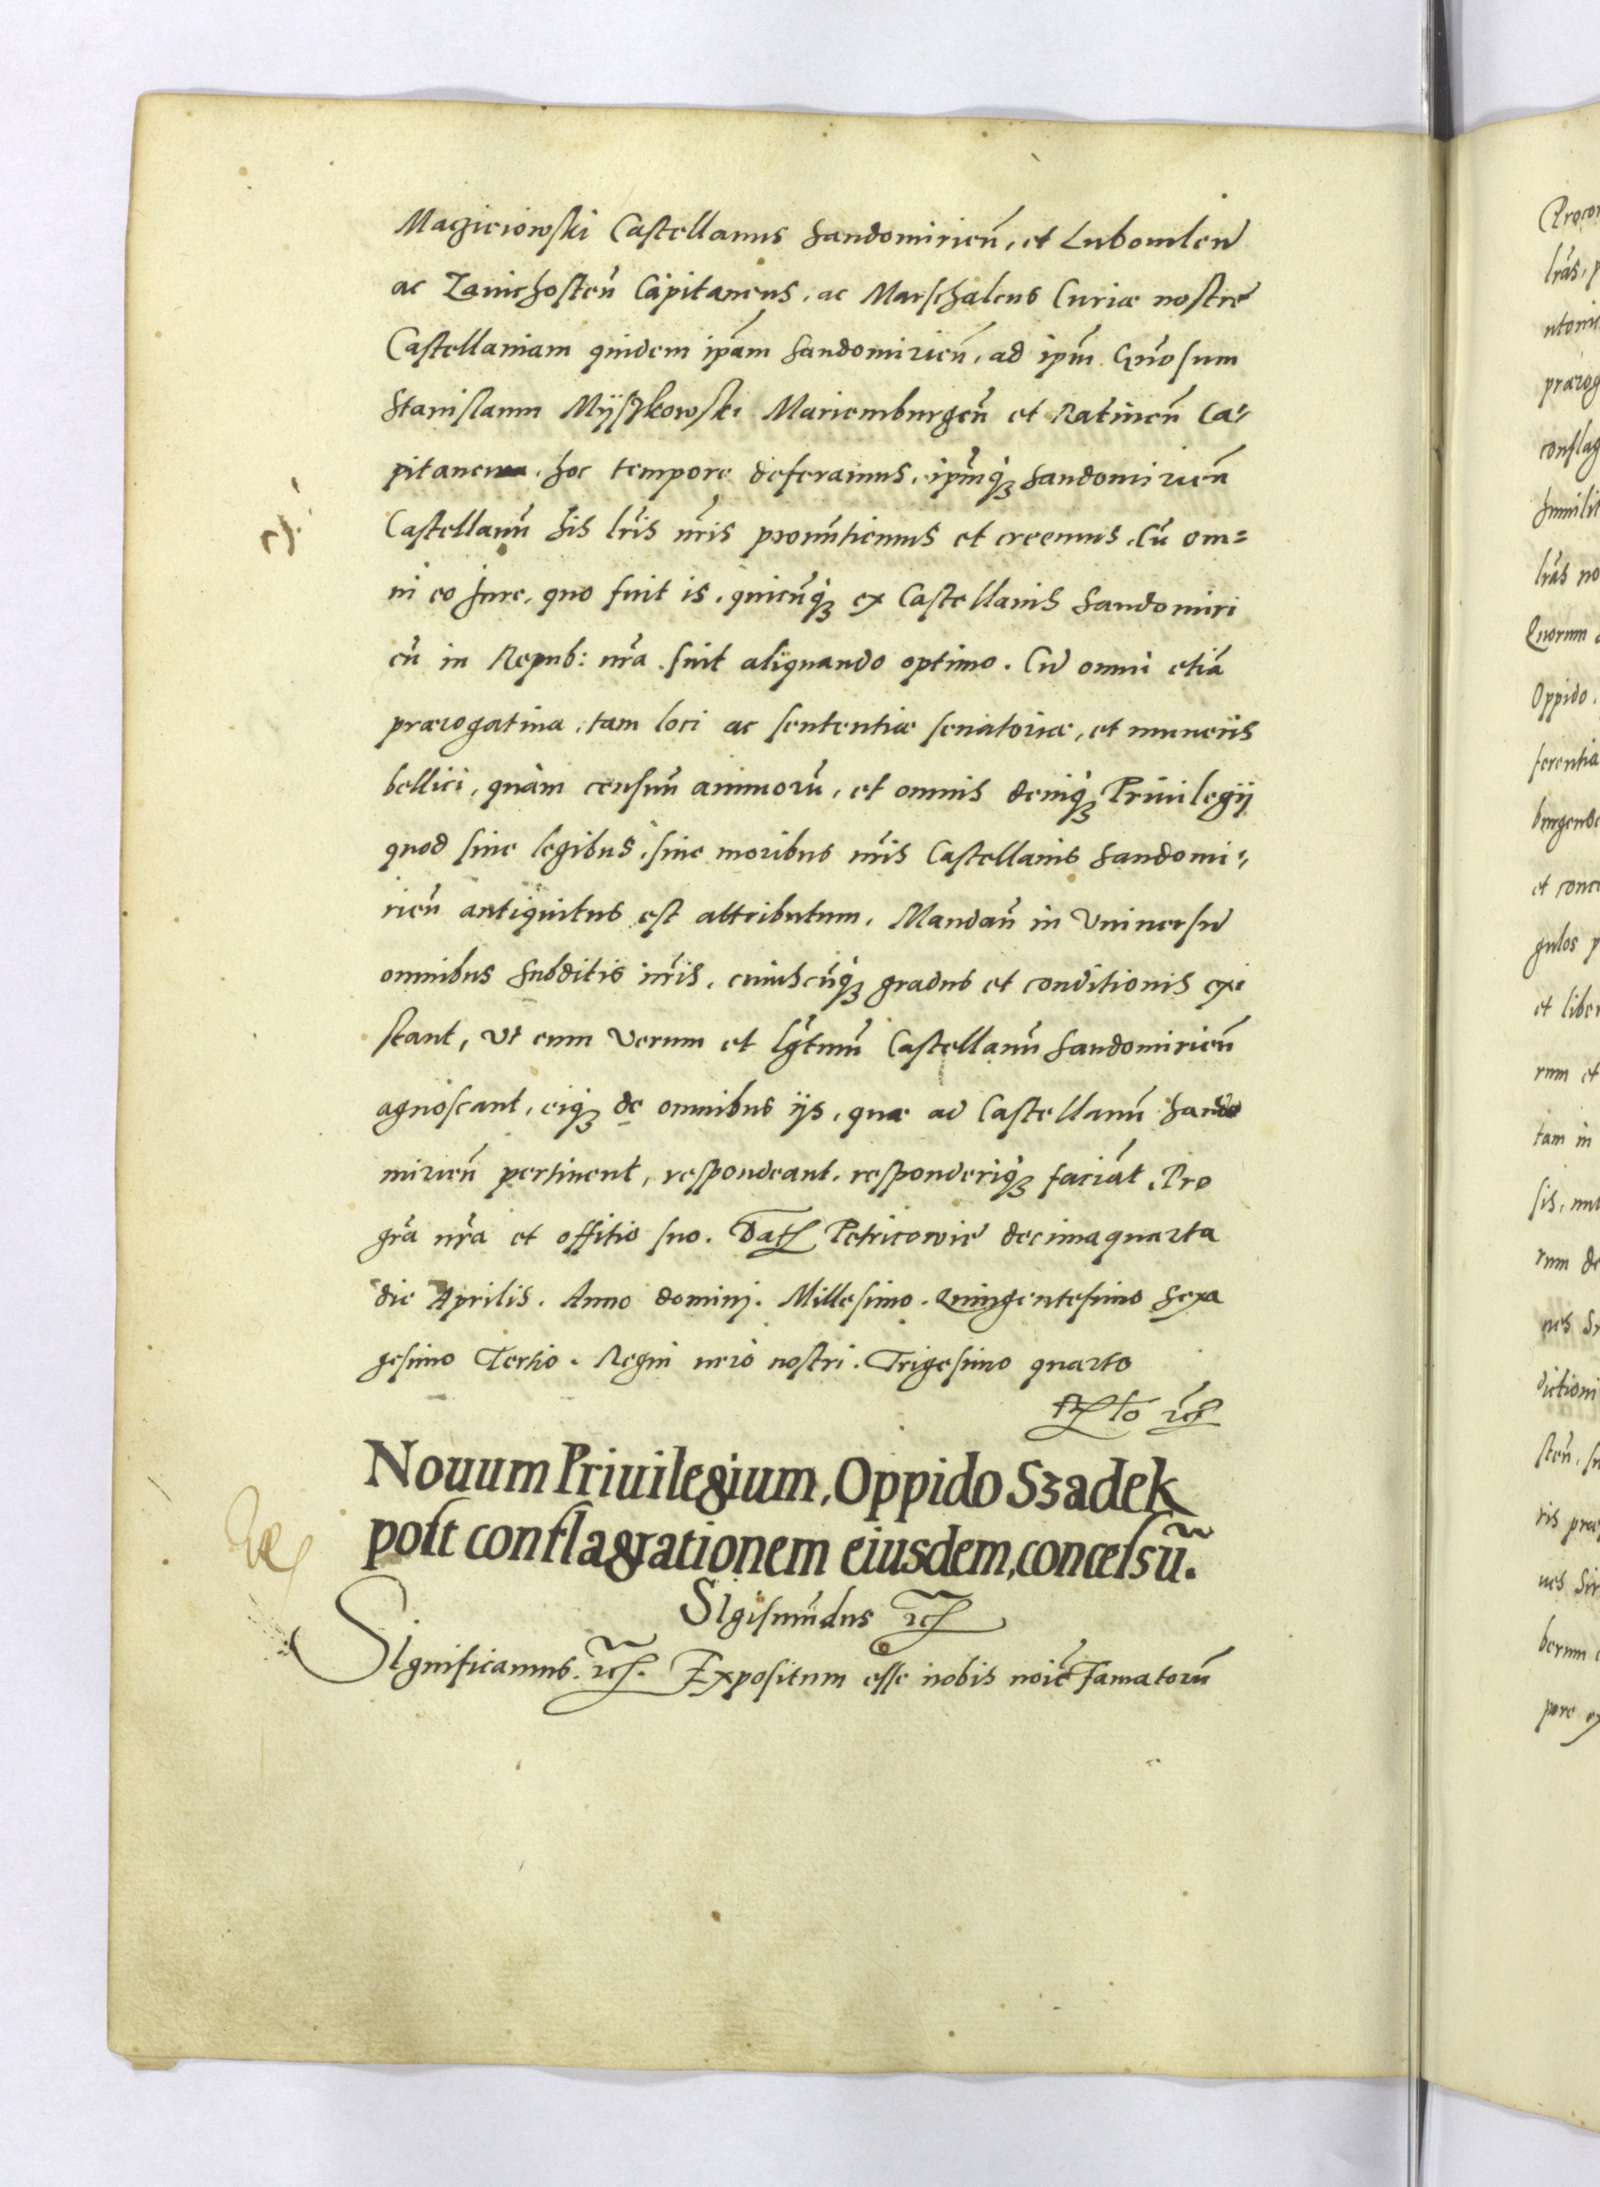 Macziciowski Castellanus Sandomirien̄, et Lubomlen̄
ac Zawichosten̄ Capitaneus, ac Marschalcus Curiæ nostre
Castellaniam quidem ip̄am Sandomirien̄, ad ip̄m Gn̄osum
Stanislaum Mÿszkowski Mariemburgen̄ et Ratnen̄ Ca-
pitaneum, hoc tempore deferamus, ip̄mq̧ Sandomirien̄
Castellanū his lr̄is nr̄is pronūtiemus et creemus. Cū om=
ni eo Jure, quo fuit is, quicūq̧ ex Castellanis Sandomiri
en̄ in Repub: nr̄a fuit aliquando optimo. Cū omni etiā
prærogatiua, tam loci ac sententiæ senatoriæ, et muneris
bellici, quàm censuū annuorū, et omnis deniq̧ Priuilegij
quod siue legibus, siue moribus nr̄is Castellanis Sandomi-
rien̄ antiquitus est attributum. Mandan̄ in Vniuersū
omnibus Subditis nr̄is, cuiuscūq̧ gradus et conditionis exi
stant, Vt eum Verum et lḡtimū Castellanū Sandomirien̄
agnoscant, eiq̧ de omnibus ijs, quæ ad Castellanū Sando
mirien̄ pertinent, respondeant, responderiq̧ faciāt. Pro
gr̄a nr̄a et offitio suo. Dat̄ Petricowie decimaquarta
die Aprilis. Anno dominj. Millesimo. Quingentesimo Sexa
gesimo Tertio. Regni uero nostri. Trigesimo quarto
Nouum Priuilegium, Oppido Szadek
post conflagrationem eiusdem, concessū.
Sigismūdus etc̄
Significamus etc̄. Expositum esse nobis noīe Famatorū